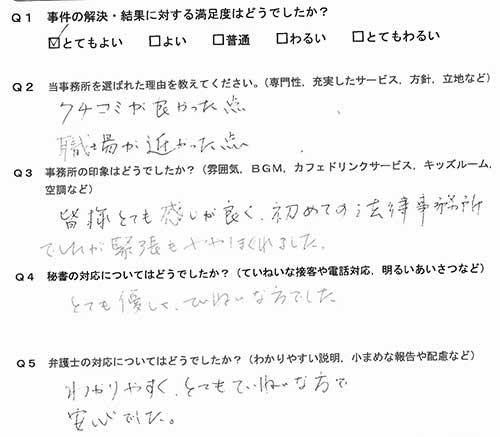 Q1 事件の解決・結果に対する満足度はどうでしたか?
☑とてもよい □よい □普通 □わるい □とてもわるい
Q2 当事務所を選ばれた理由を教えてください。(専門性,充実したサービス,方針,立地など)
クチコミが良かった点
職場が近かった点
Q3 事務所の印象はどうでしたか?(雰囲気,BGM,カフェドリンクサービス,キッズルーム,
空調など)
皆様とても感じが良く、初めての法律事務所
でしたが緊張もややほぐれました。
Q4 秘書の対応についてはどうでしたか?(ていねいな接客や電話対応,明るいあいさつなど)
とても優しく、ていねいな方でした
Q5 弁護士の対応についてはどうでしたか?(わかりやすい説明,小まめな報告や配慮など)
わかりやすく、とてもていねいな方で
安心でした。